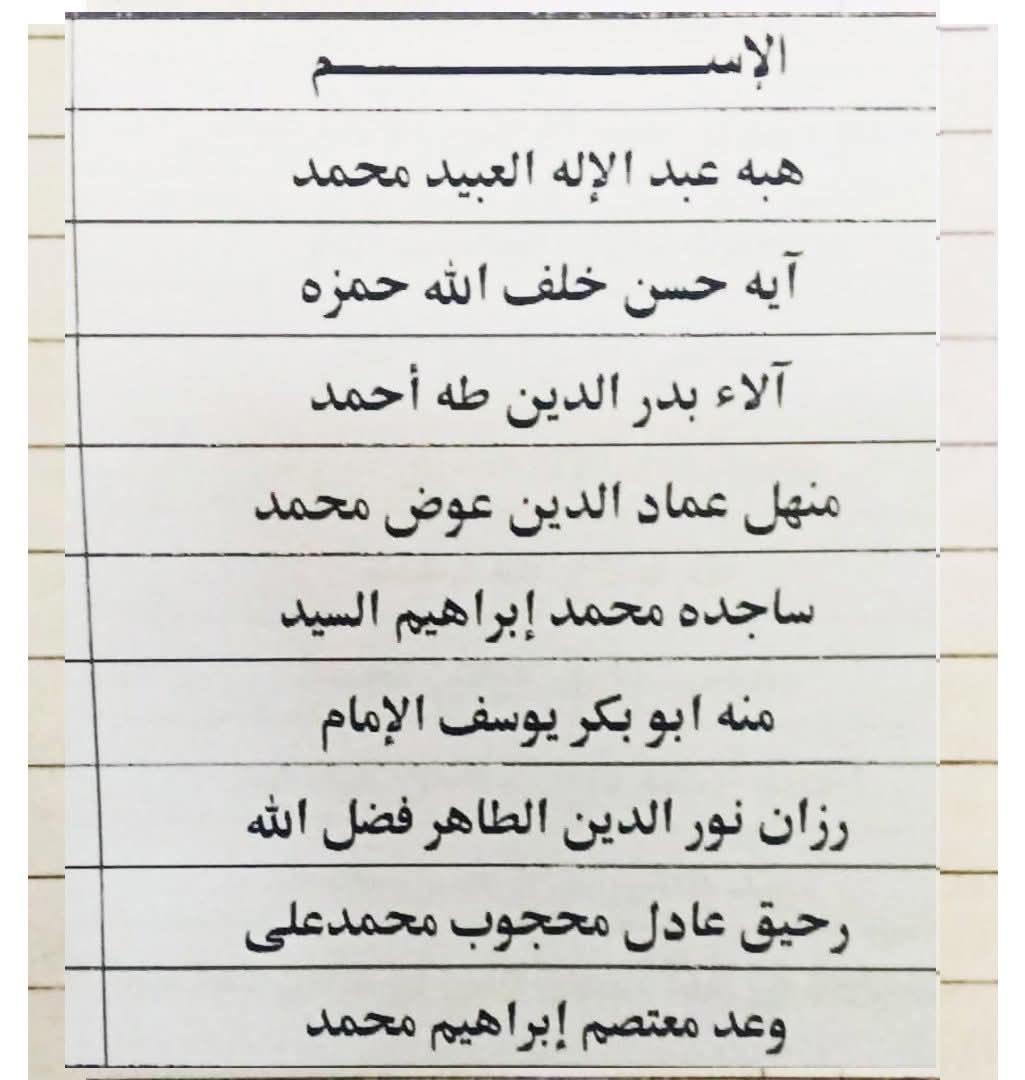 الإســـــــــم
هبه عبد الإله العبيد محمد
آيه حسن خلف الله حمزه
آلاء بدر الدين طه أحمد
منهل عماد الدين عوض محمد
ساجده محمد إبراهيم السيد
منه ابو بكر يوسف الإمام
رزان نور الدين الطاهر فضل الله
رحيق عادل محجوب محمدعلى
وعد معتصم إبراهيم محمد